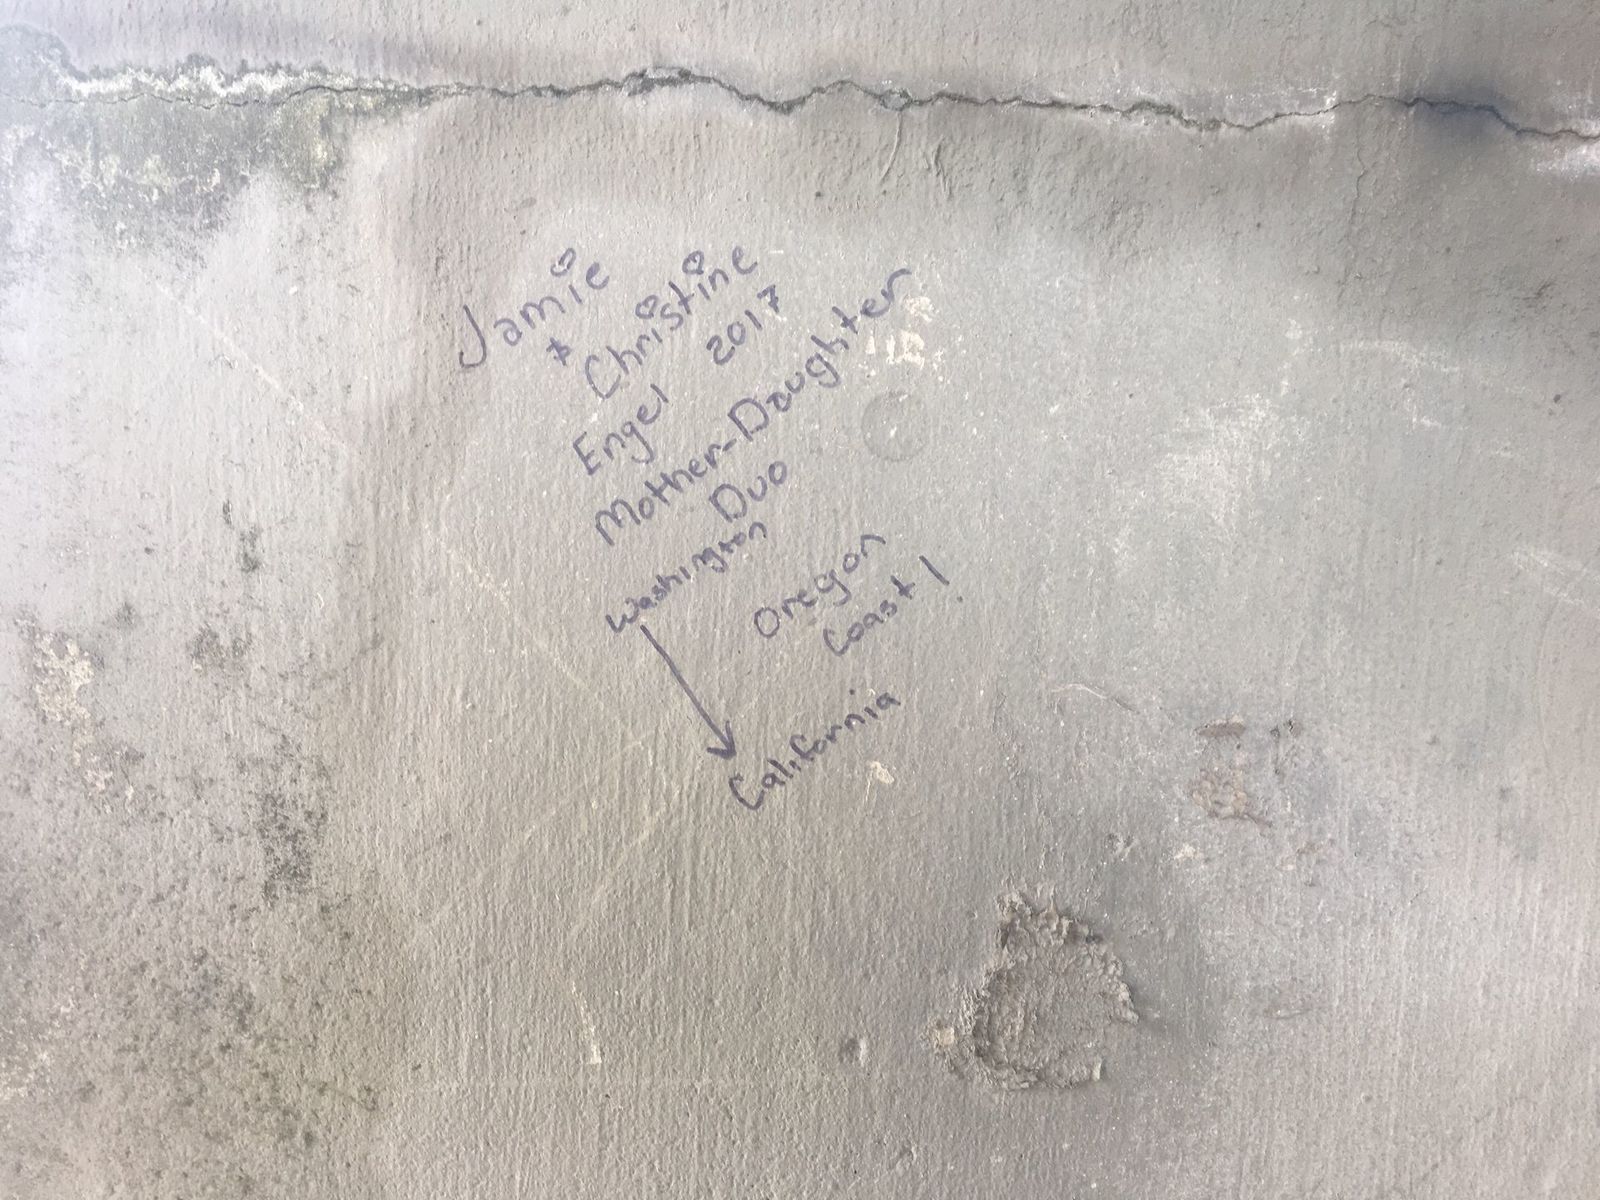 Jamie
+ Christine
Engel 2017
Mother-Daughter
Duo
Washington
Oregon
Coast!
California